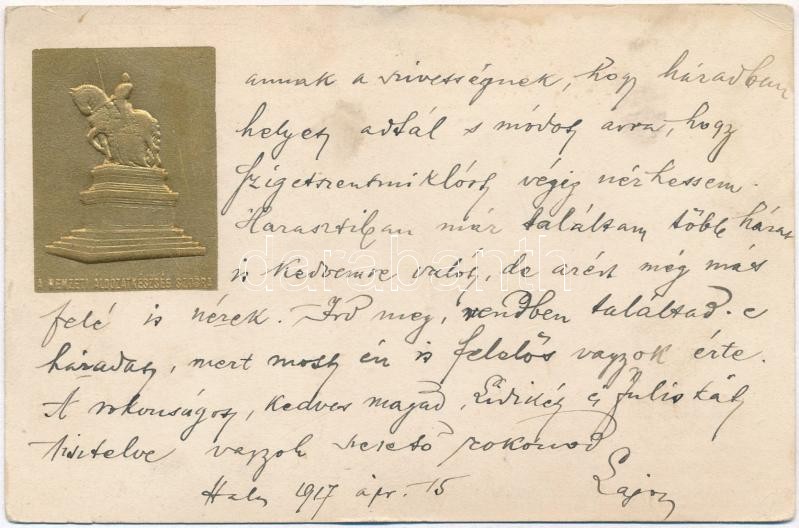 annak a szivességnek, hogy házadban
helyet adtál s módot arra, hogy
Szigetszentmiklóst végig nézhessem.
Harasztiban már találtam több házat
is kedvemre valót, de azért még más
A NEMZETI ÁLDOZATKÉSZSÉG SZOBRA
felé is nézek. Ird meg, rendben találtad-e
házadat, mert most én is felelős vagyok érte.
A rokonságot, kedves magad, Lidikét és Juliskát
tisztelve vagyok szerető rokonod
Halas 1917 ápr. 15 Lajos
darabanth